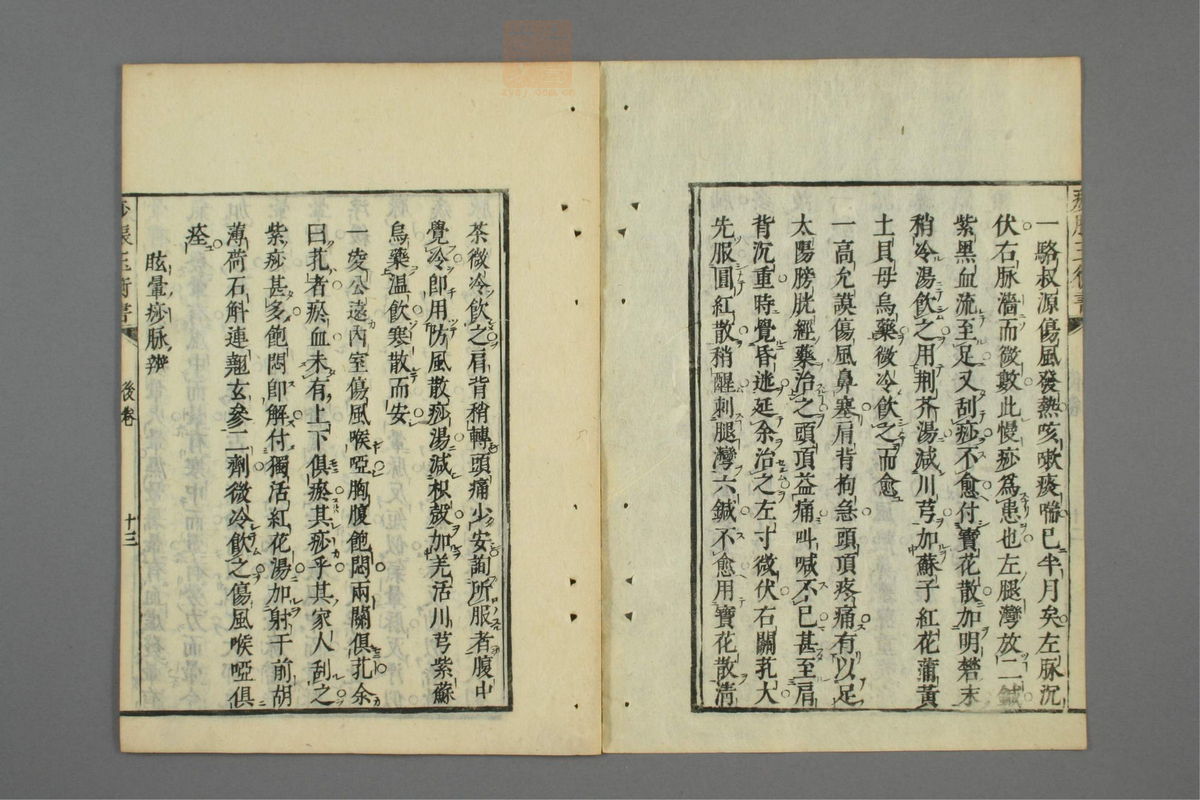 一駱叔源傷風發熱咳嗽痰喘巳半月矣左脉沉
伏右脉濇而微數此慢痧爲患也左腿灣放二鍼
紫黑血流至足又刮痧不愈付寶花散加明礬末
稍冷湯飲之用荆芥湯減川芎加蘇子紅花蒲黃
土貝母烏藥微冷飲之而愈
一高允謨傷風鼻塞肩背拘急頭項疼痛有以足
太陽膀胱經藥治之頭項益痛叫喊不巳甚至肩
背沉重時覺昏迷延余治之左寸微伏右關芤大
先服圓紅散稍醒刺腿灣六鍼不愈用寶花散清
茶微冷飲之肩背稍轉頭痛少安詢所服者腹中
覺冷卽用防風散痧湯減枳殼加羌活川芎紫蘇
烏藥溫飲寒散而安
一凌公遠內室傷風喉啞胸腹飽悶兩關俱芤余
曰芤者瘀血未有上下俱瘀其痧乎其家人刮之
紫痧甚多飽悶卽解付獨活紅花湯加射干前胡
薄荷石斛連翹玄參二劑微冷飲之傷風喉啞俱
痊
眩暈痧脉辨
痧脹玉衡書
後卷
十三